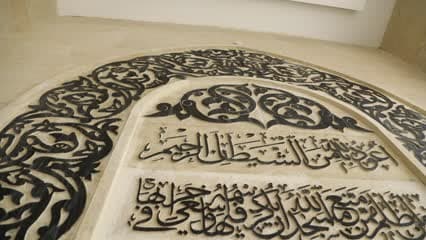 اعوذ بالله من الشيطان الرجيم
اظلم ممن منع مساجد الله ان يذكر فيها اسمه وسعى في خرابها